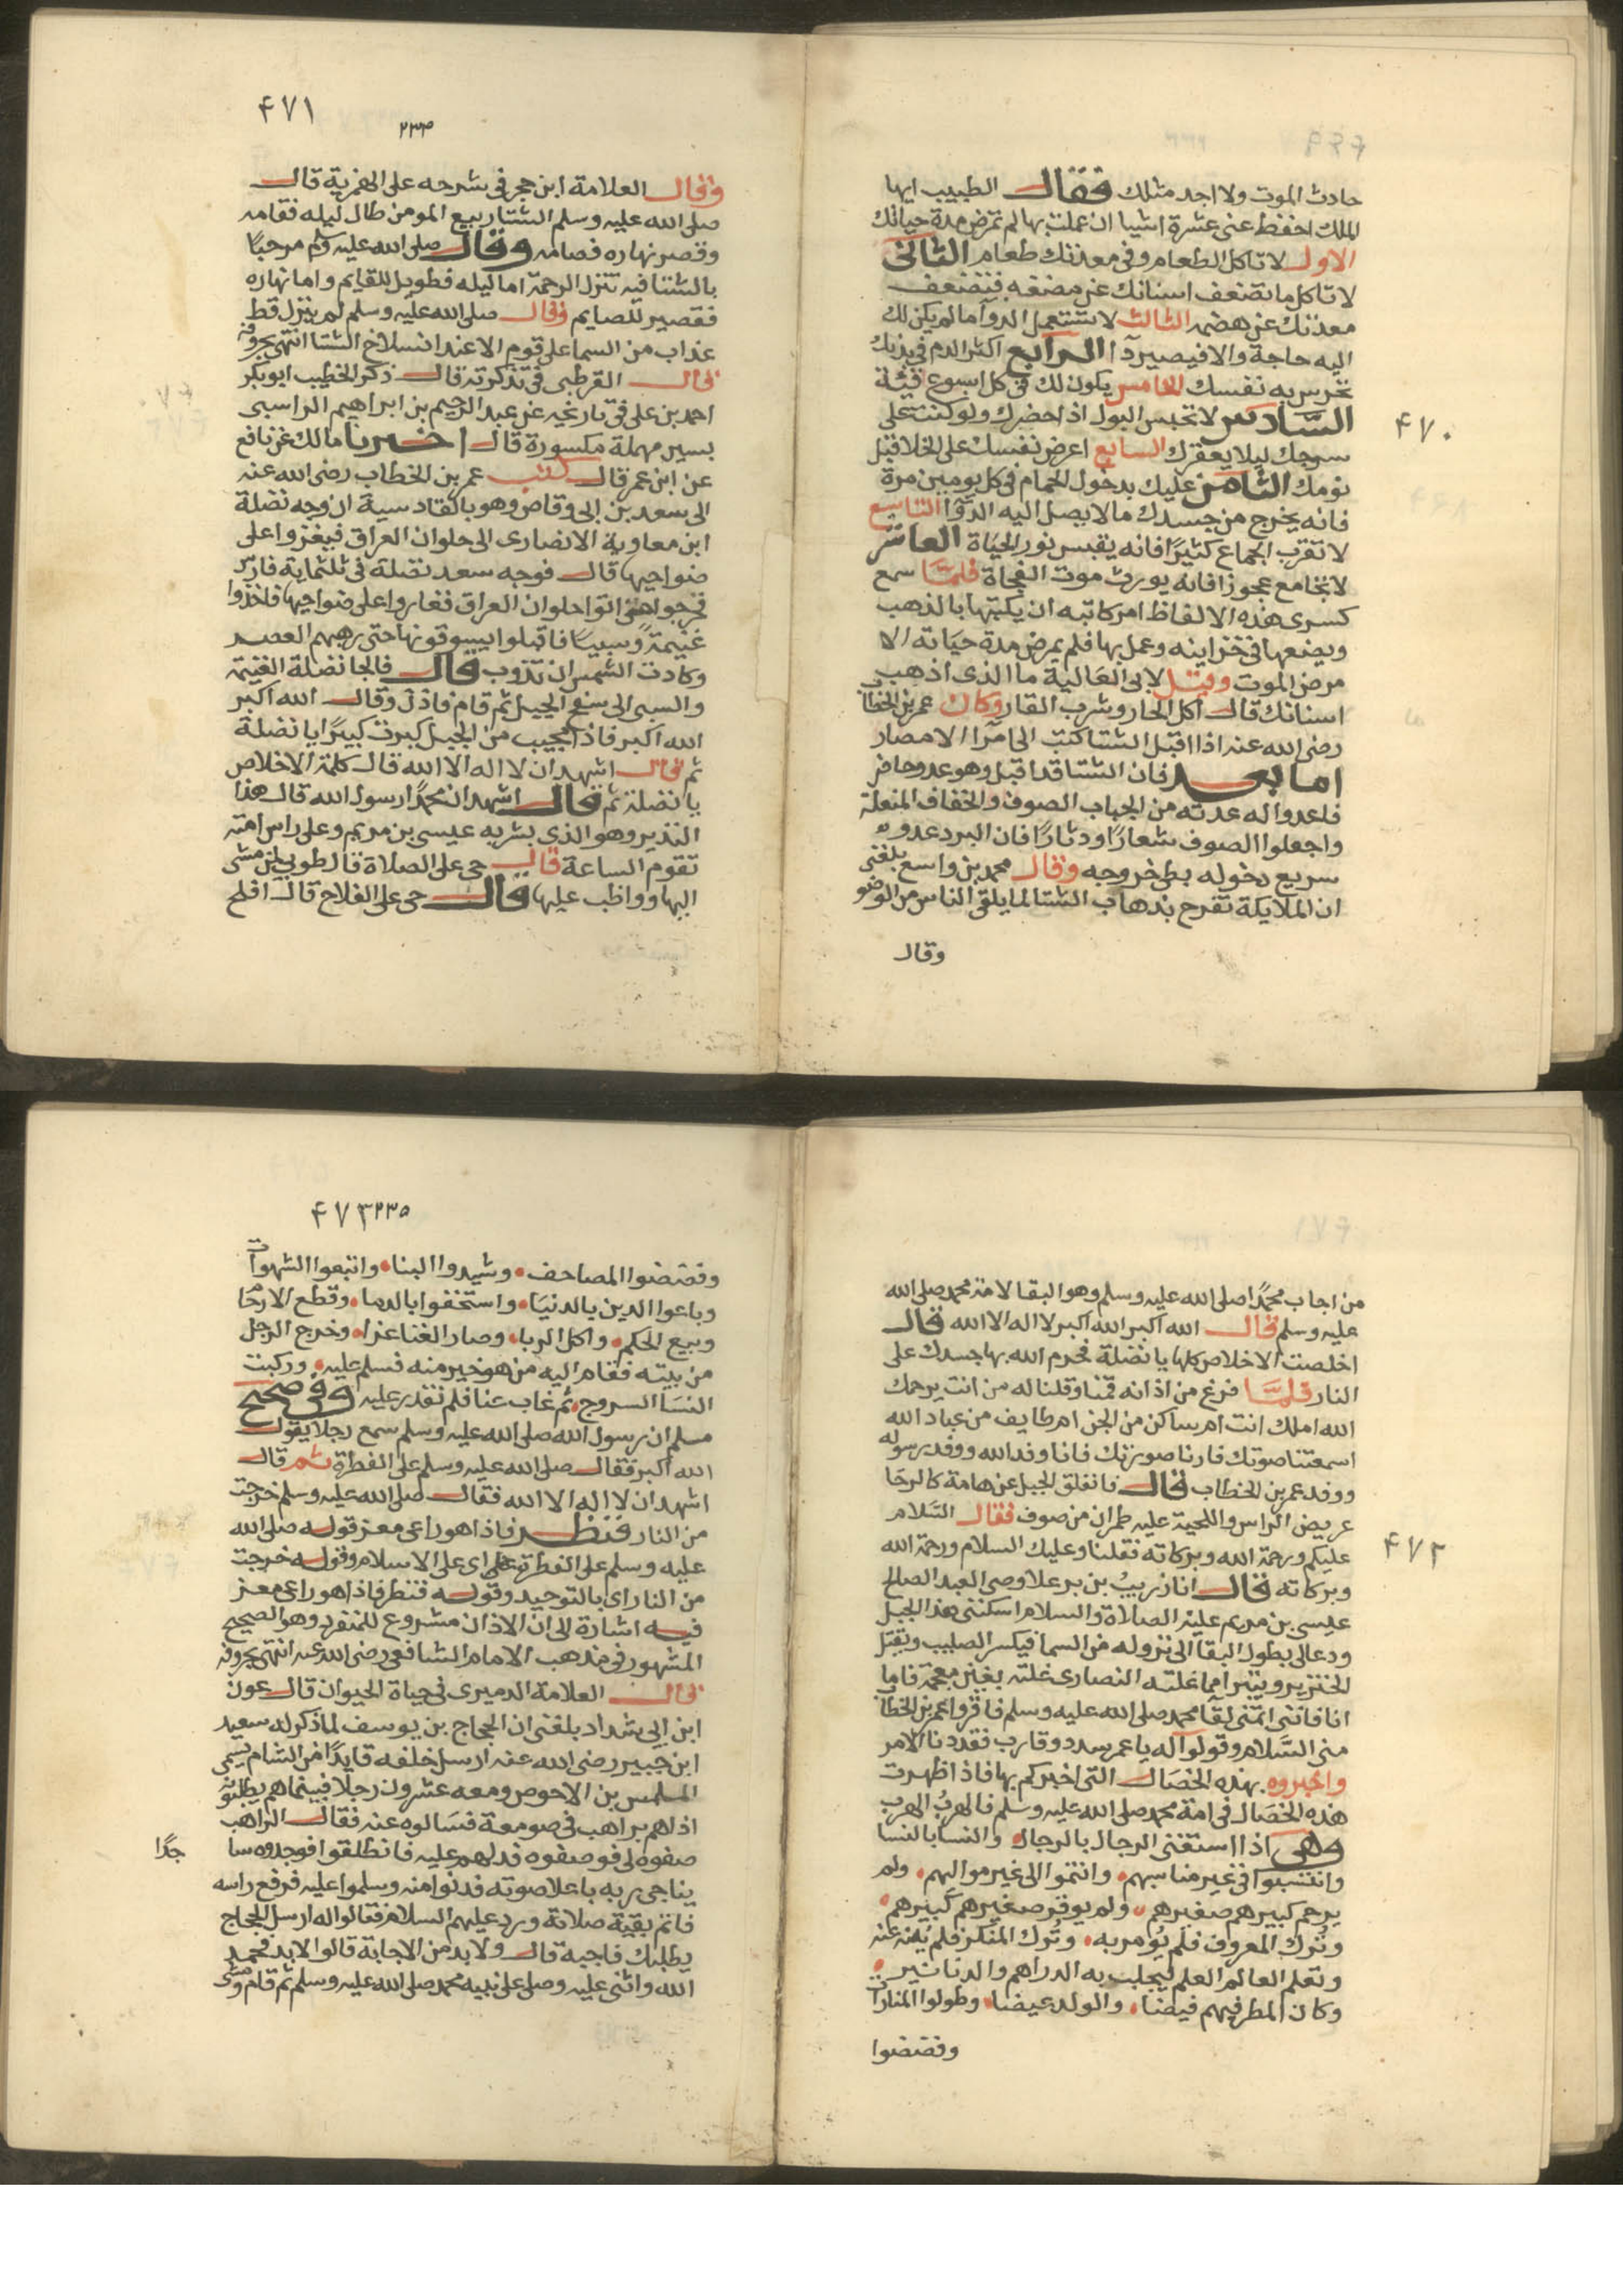 ٤٧٠
حادث الموت ولا اجد مثلك فقال الطبيب ايها
الملك احفظ عني عشرة اشيا ان عملت بها لم تمرض مدة حياتك
الاول لا تاكل الطعام وفي معدتك طعام الثاني
لا تاكل ما تضعف اسنانك عن مضغه فتضعف
معدتك عن هضمه الثالث لا تستعمل الدوآ ما لم يكن لك
اليه حاجة والا فيصير دآ الرابع اكثر الدم في بدنك
تحرس به نفسك الخامس يكون لك في كل اسبوع قيئة
السادس لا تحبس البول اذا حضرك ولو كنت على
سرجك ليلا يعقرك السابع اعرض نفسك على الخلا قبل
نومك الثامن عليك بدخول الحمام في كل يومين مرة
فانه يخرج من جسدك ما لا يصل اليه الدوا التاسع
لا تقرب الجماع كثيرًا فانه يقبس نور الحياة العاشر
لا تجامع عجوزا فانه يورث موت الفجاة فلما سمع
كسرى هذه الالفاظ امر كاتبه ان يكتبها بالذهب
ويضعها في خزاينه وعمل بها فلم يمرض مدة حياته الا
مرض الموت وقيل لابي العالية ما الذي اذهب
اسنانك قال اكل الحار وشرب القار وكان عمر بن الخطاب
رضي الله عنه اذا اقبل الشتا كتب الى امرا الامصار
اما بعد فان الشتا قد اقبل وهو عدو حاضر
فاعدوا له عدته من الجباب الصوف والخفاف المنعلة
واجعلوا الصوف شعارًا ودثارًا فان البرد عدو
سريع دخوله بطي خروجه وقال محمد بن واسع بلغني
ان الملايكة تفرح بذهاب الشتا لما يلقى الناس من الوضو
وقال
٤٧١
٢٣٤
وقال العلامة ابن حجر في شرحه على الهمزية قال
صلى الله عليه وسلم الشتا ربيع المومن طال ليله فقامه
وقصر نهاره فصامه وقال صلى الله عليه وسلم مرحبًا
بالشتا فيه تنزل الرحمة اما ليله فطويل للقايم واما نهاره
فقصير للصايم وقال صلى الله عليه وسلم لم ينزل قط
عذاب من السما على قوم الا عند انسلاخ الشتا انتهى بحروفه
قال القرطبي في تذكرته قال ذكر الخطيب ابو بكر
احمد بن علي في تاريخه عن عبد الرحيم بن ابراهيم الراسبي
بسين مهملة مكسورة قال اخبرنا مالك عن نافع
عن ابن عمر قال كتب عمر بن الخطاب رضي الله عنه
الى سعد بن ابي وقاص وهو بالقادسية ان وجه نضلة
ابن معاوية الانصارى الى حلوان العراق فيغزوا على
ضواحيها قال فوجه سعد نضلة في ثلثماية فارس
فخرجوا حتى اتوا حلوان العراق فغاروا على ضواحيها فاخذوا
غنيمة وسبيًا فاقبلوا يسوقونها حتى رهبهم العصر
وكادت الشمس ان تذوب قال فالجا نضلة الغنيمة
والسبي الى سفح الجبل ثم قام فاذن وقال الله اكبر
الله اكبر فاذا مجيب من الجبل كبرت كبيرًا يا نضلة
ثم قال اشهد ان لا اله الا الله قال كلمة الاخلاص
يا نضلة ثم قال اشهد ان محمدًا رسول الله قال هذا
النذير وهو الذي بشر به عيسى بن مريم وعلى راس امته
تقوم الساعة قال حي على الصلاة قال طوبى لمن مشى
اليها وواظب عليها قال حي على الفلاح قال افلح
٤٧٢
من اجاب محمدًا صلى الله عليه وسلم وهو البقا لامة محمد صلى الله
عليه وسلم قال الله اكبر الله اكبر لا اله الا الله قال
اخلصت الاخلاص كلها يا نضلة فحرم الله بها جسدك على
النار فلما فرغ من اذانه قمنا وقلنا له من انت يرحمك
الله املك انت ام ساكن من الجن ام طايف من عباد الله
اسمعتنا صوتك فارنا صورتك فانا وفد الله ووفد رسوله
ووفد عمر بن الخطاب قال فانفلق الجبل عن هامة كالرحا
عريض الراس واللحية عليه طمران من صوف فقال السلام
عليكم ورحمة الله وبركاته فقلنا وعليك السلام ورحمة الله
وبركاته فقال انا زريب بن برعلا وصي العبد الصالح
عيسى بن مريم عليه الصلاة والسلام اسكنني هذا الجبل
ودعا لي بطول البقا الى نزوله من السما فيكسر الصليب ويقتل
الخنزير ويتبرا مما غلته النصارى غلته بغين معجمة فاما
انا فاتني لقا محمد صلى الله عليه وسلم فاقروا عمر بن الخطاب
مني السلام وقولوا له يا عمر سدد وقارب فقد دنا الامر
واخبروه بهذه الخصال التي اخبركم بها فاذا ظهرت
هذه الخصال في امة محمد صلى الله عليه وسلم فالهرب الهرب
وهي اذا استغنى الرجال بالرجال والنسا بالنسا
وانتسبوا في غير مناسبهم وانتموا الى غير مواليهم ولم
يرحم كبيرهم صغيرهم ولم يوقر صغيرهم كبيرهم
وتُرك المعروف فلم يُومر به وتُرك المنكر فلم ينه عنه
وتعلم العالم العلم ليجلب به الدراهم والدنانير
وكان المطر فيهم قيضا والولد غيضا وطولوا المنارات
وفضضوا
٤٧٣ ٢٣٥
وفضضوا المصاحف وشيدوا البنا واتبعوا الشهوات
وباعوا الدين بالدنيا واستخفوا بالدما وقطع الارحام
وبيع الحكم واكل الربا وصار الغنا عزا وخرج الرجل
من بيته فقام اليه من هو خير منه فسلم عليه وركبت
النسا السروج ثم غاب عنا فلم نقدر عليه وفي صحيح
مسلم ان رسول الله صلى الله عليه وسلم سمع رجلا يقول
الله اكبر فقال صلى الله عليه وسلم على الفطرة ثم قال
اشهد ان لا اله الا الله فقال صلى الله عليه وسلم خرجت
من النار فنظر فاذا هو راعي معز قوله صلى الله
عليه وسلم على الفطرة اى على الاسلام وقوله خرجت
من النار اى بالتوحيد وقوله فنظر فاذا هو راعي معز
فيه اشارة الى ان الاذان مشروع للمنفرد وهو الصحيح
المشهور في مذهب الامام الشافعي رضي الله عنه انتهى بحروفه
قال العلامة الدميرى في حياة الحيوان قال عون
ابن ابي شداد بلغني ان الحجاج بن يوسف لما ذكر له سعيد
ابن جبير رضي الله عنه ارسل خلفه قايدًا من الشام يسمى
المتلمس بن الاحوص ومعه عشرون رجلا فبينما هم يطلبونه
اذا هم براهب في صومعة فسالوه عنه فقال الراهب
صفوه لي فوصفوه فدلهم عليه فانطلقوا فوجدوه ساجدًا
يناجي ربه باعلا صوته فدنوا منه وسلموا عليه فرفع راسه
فاتم بقية صلاته ورد عليهم السلام فقالوا له ارسل الحجاج
يطلبك فاجبه قال ولابد من الاجابة قالوا لابد فحمد
الله واثنى عليه وصلى على نبيه محمد صلى الله عليه وسلم ثم قام ومشى